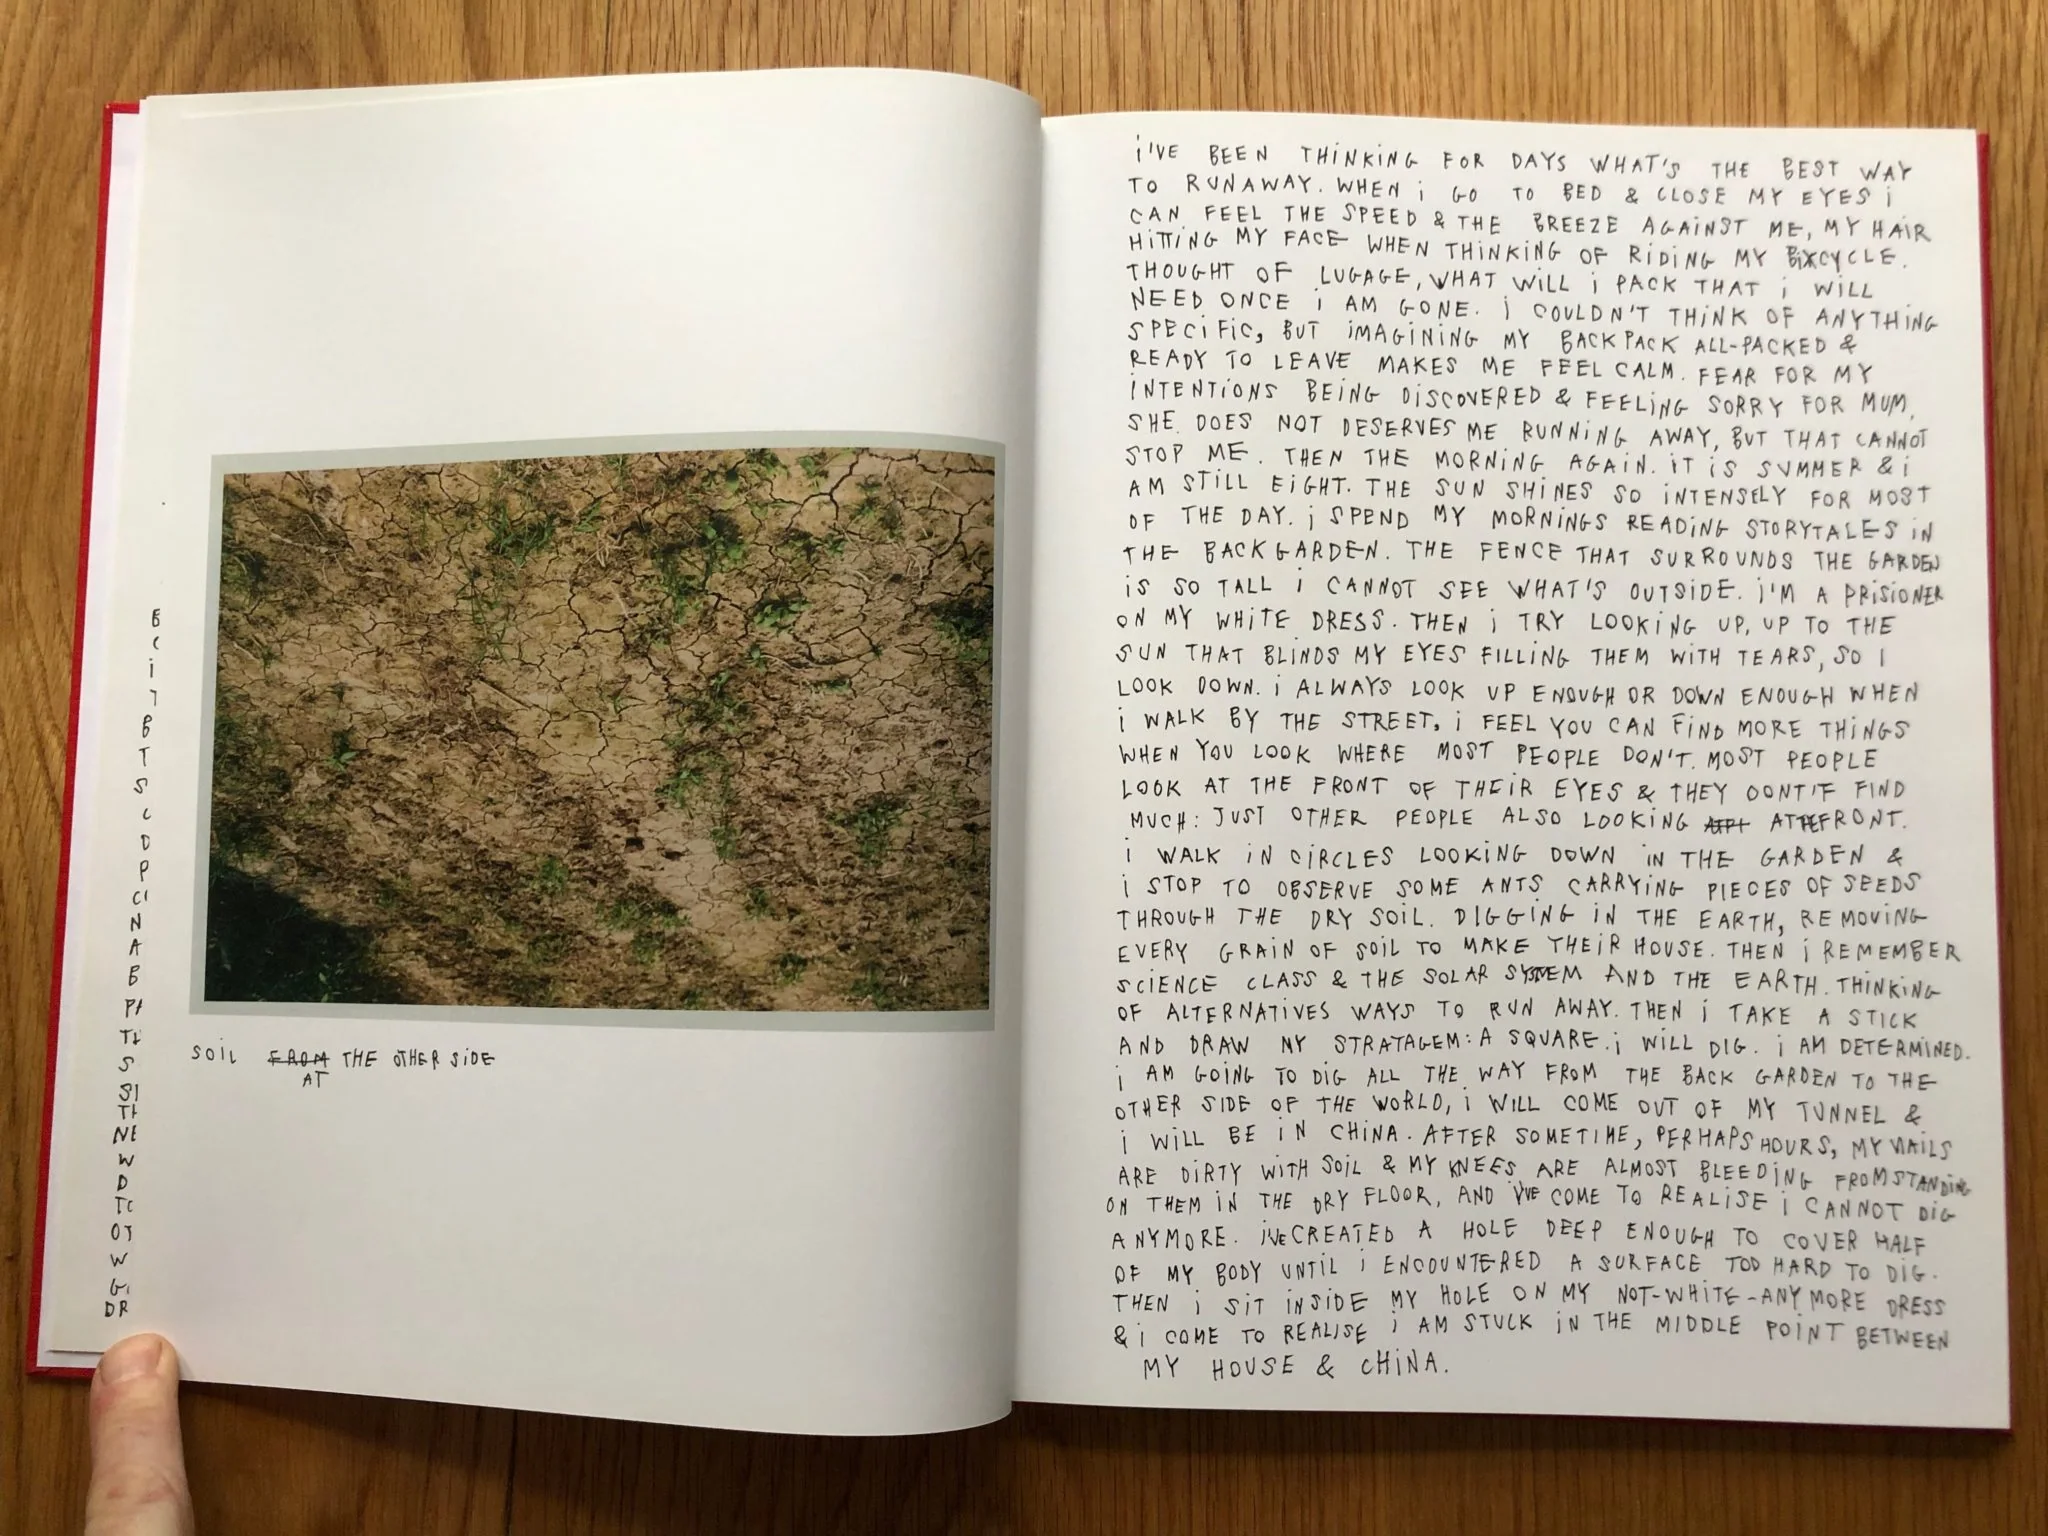 SOIL FROM THE OTHER SIDE
AT
I'VE BEEN THINKING FOR DAYS WHAT'S THE BEST WAY
TO RUNAWAY. WHEN i GO TO BED & CLOSE MY EYES i
CAN FEEL THE SPEED & THE BREEZE AGAINST ME, MY HAIR
HITTING MY FACE WHEN THINKING OF RIDING MY BIXCYCLE.
THOUGHT OF LUGAGE, WHAT WILL i PACK THAT i WILL
NEED ONCE i AM GONE. i COULDN'T THINK OF ANYTHING
SPECIFIC, BUT IMAGINING MY BACKPACK ALL-PACKED &
READY TO LEAVE MAKES ME FEEL CALM. FEAR FOR MY
INTENTIONS BEING DISCOVERED & FEELING SORRY FOR MUM,
SHE DOES NOT DESERVES ME RUNNING AWAY, BUT THAT CANNOT
STOP ME. THEN THE MORNING AGAIN. IT IS SUMMER & i
AM STILL EIGHT. THE SUN SHINES SO INTENSELY FOR MOST
OF THE DAY. i SPEND MY MORNINGS READING STORYTALES IN
THE BACKGARDEN. THE FENCE THAT SURROUNDS THE GARDEN
IS SO TALL i CANNOT SEE WHAT'S OUTSIDE. I'M A PRISIONER
ON MY WHITE DRESS. THEN i TRY LOOKING UP, UP TO THE
SUN THAT BLINDS MY EYES FILLING THEM WITH TEARS, SO I
LOOK DOWN. i ALWAYS LOOK UP ENOUGH OR DOWN ENOUGH WHEN
i WALK BY THE STREET, i FEEL YOU CAN FIND MORE THINGS
WHEN YOU LOOK WHERE MOST PEOPLE DON'T. MOST PEOPLE
LOOK AT THE FRONT OF THEIR EYES & THEY FIND
MUCH: JUST OTHER PEOPLE ALSO LOOKING AT THE FRONT.
i WALK IN CIRCLES LOOKING DOWN IN THE GARDEN &
i STOP TO OBSERVE SOME ANTS CARRYING PIECES OF SEEDS
THROUGH THE DRY SOIL. DIGGING IN THE EARTH, REMOVING
EVERY GRAIN OF SOIL TO MAKE THEIR HOUSE. THEN i REMEMBER
SCIENCE CLASS & THE SOLAR SYSTEM AND THE EARTH. THINKING
OF ALTERNATIVES WAYS TO RUN AWAY. THEN i TAKE A STICK
AND DRAW MY STRATAGEM: A SQUARE. i WILL DIG. i AM DETERMINED.
i AM GOING TO DIG ALL THE WAY FROM THE BACK GARDEN TO THE
OTHER SIDE OF THE WORLD, i WILL COME OUT OF MY TUNNEL &
i WILL BE IN CHINA. AFTER SOMETIME, PERHAPS HOURS, MY NAILS
ARE DIRTY WITH SOIL & MY KNEES ARE ALMOST BLEEDING FROM STANDING
ON THEM IN THE DRY FLOOR, AND I'VE COME TO REALISE i CANNOT DIG
ANYMORE. I'VE CREATED A HOLE DEEP ENOUGH TO COVER HALF
OF MY BODY UNTIL i ENCOUNTERED A SURFACE TOO HARD TO DIG.
THEN i SIT INSIDE MY HOLE ON MY NOT-WHITE-ANYMORE DRESS
& i COME TO REALISE i AM STUCK IN THE MIDDLE POINT BETWEEN
MY HOUSE & CHINA.